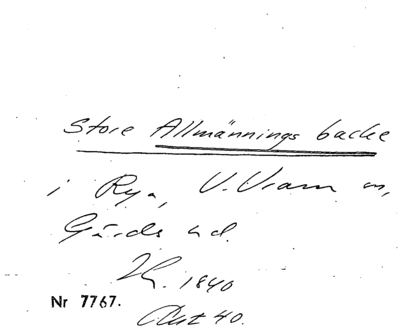 Store Allmännings backe
i Rya, V. Vram sn,
Gärds hd.
1840
Nr 7767.
Akt 40.